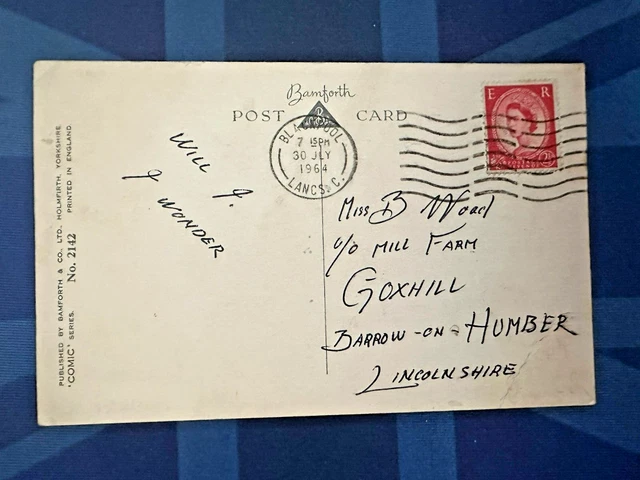 Bamforth
POST CARD
BLACKPOOL
7 15PM
30 JLY
1964
LANCS. C.
E R
WILL I.
I WONDER
Miss B Wood
c/o MILL FARM
GOXHILL
BARROW-ON-HUMBER
LINCOLNSHIRE
PUBLISHED BY BAMFORTH & CO., LTD., HOLMFIRTH, YORKSHIRE
"COMIC" SERIES. No. 2142 PRINTED IN ENGLAND